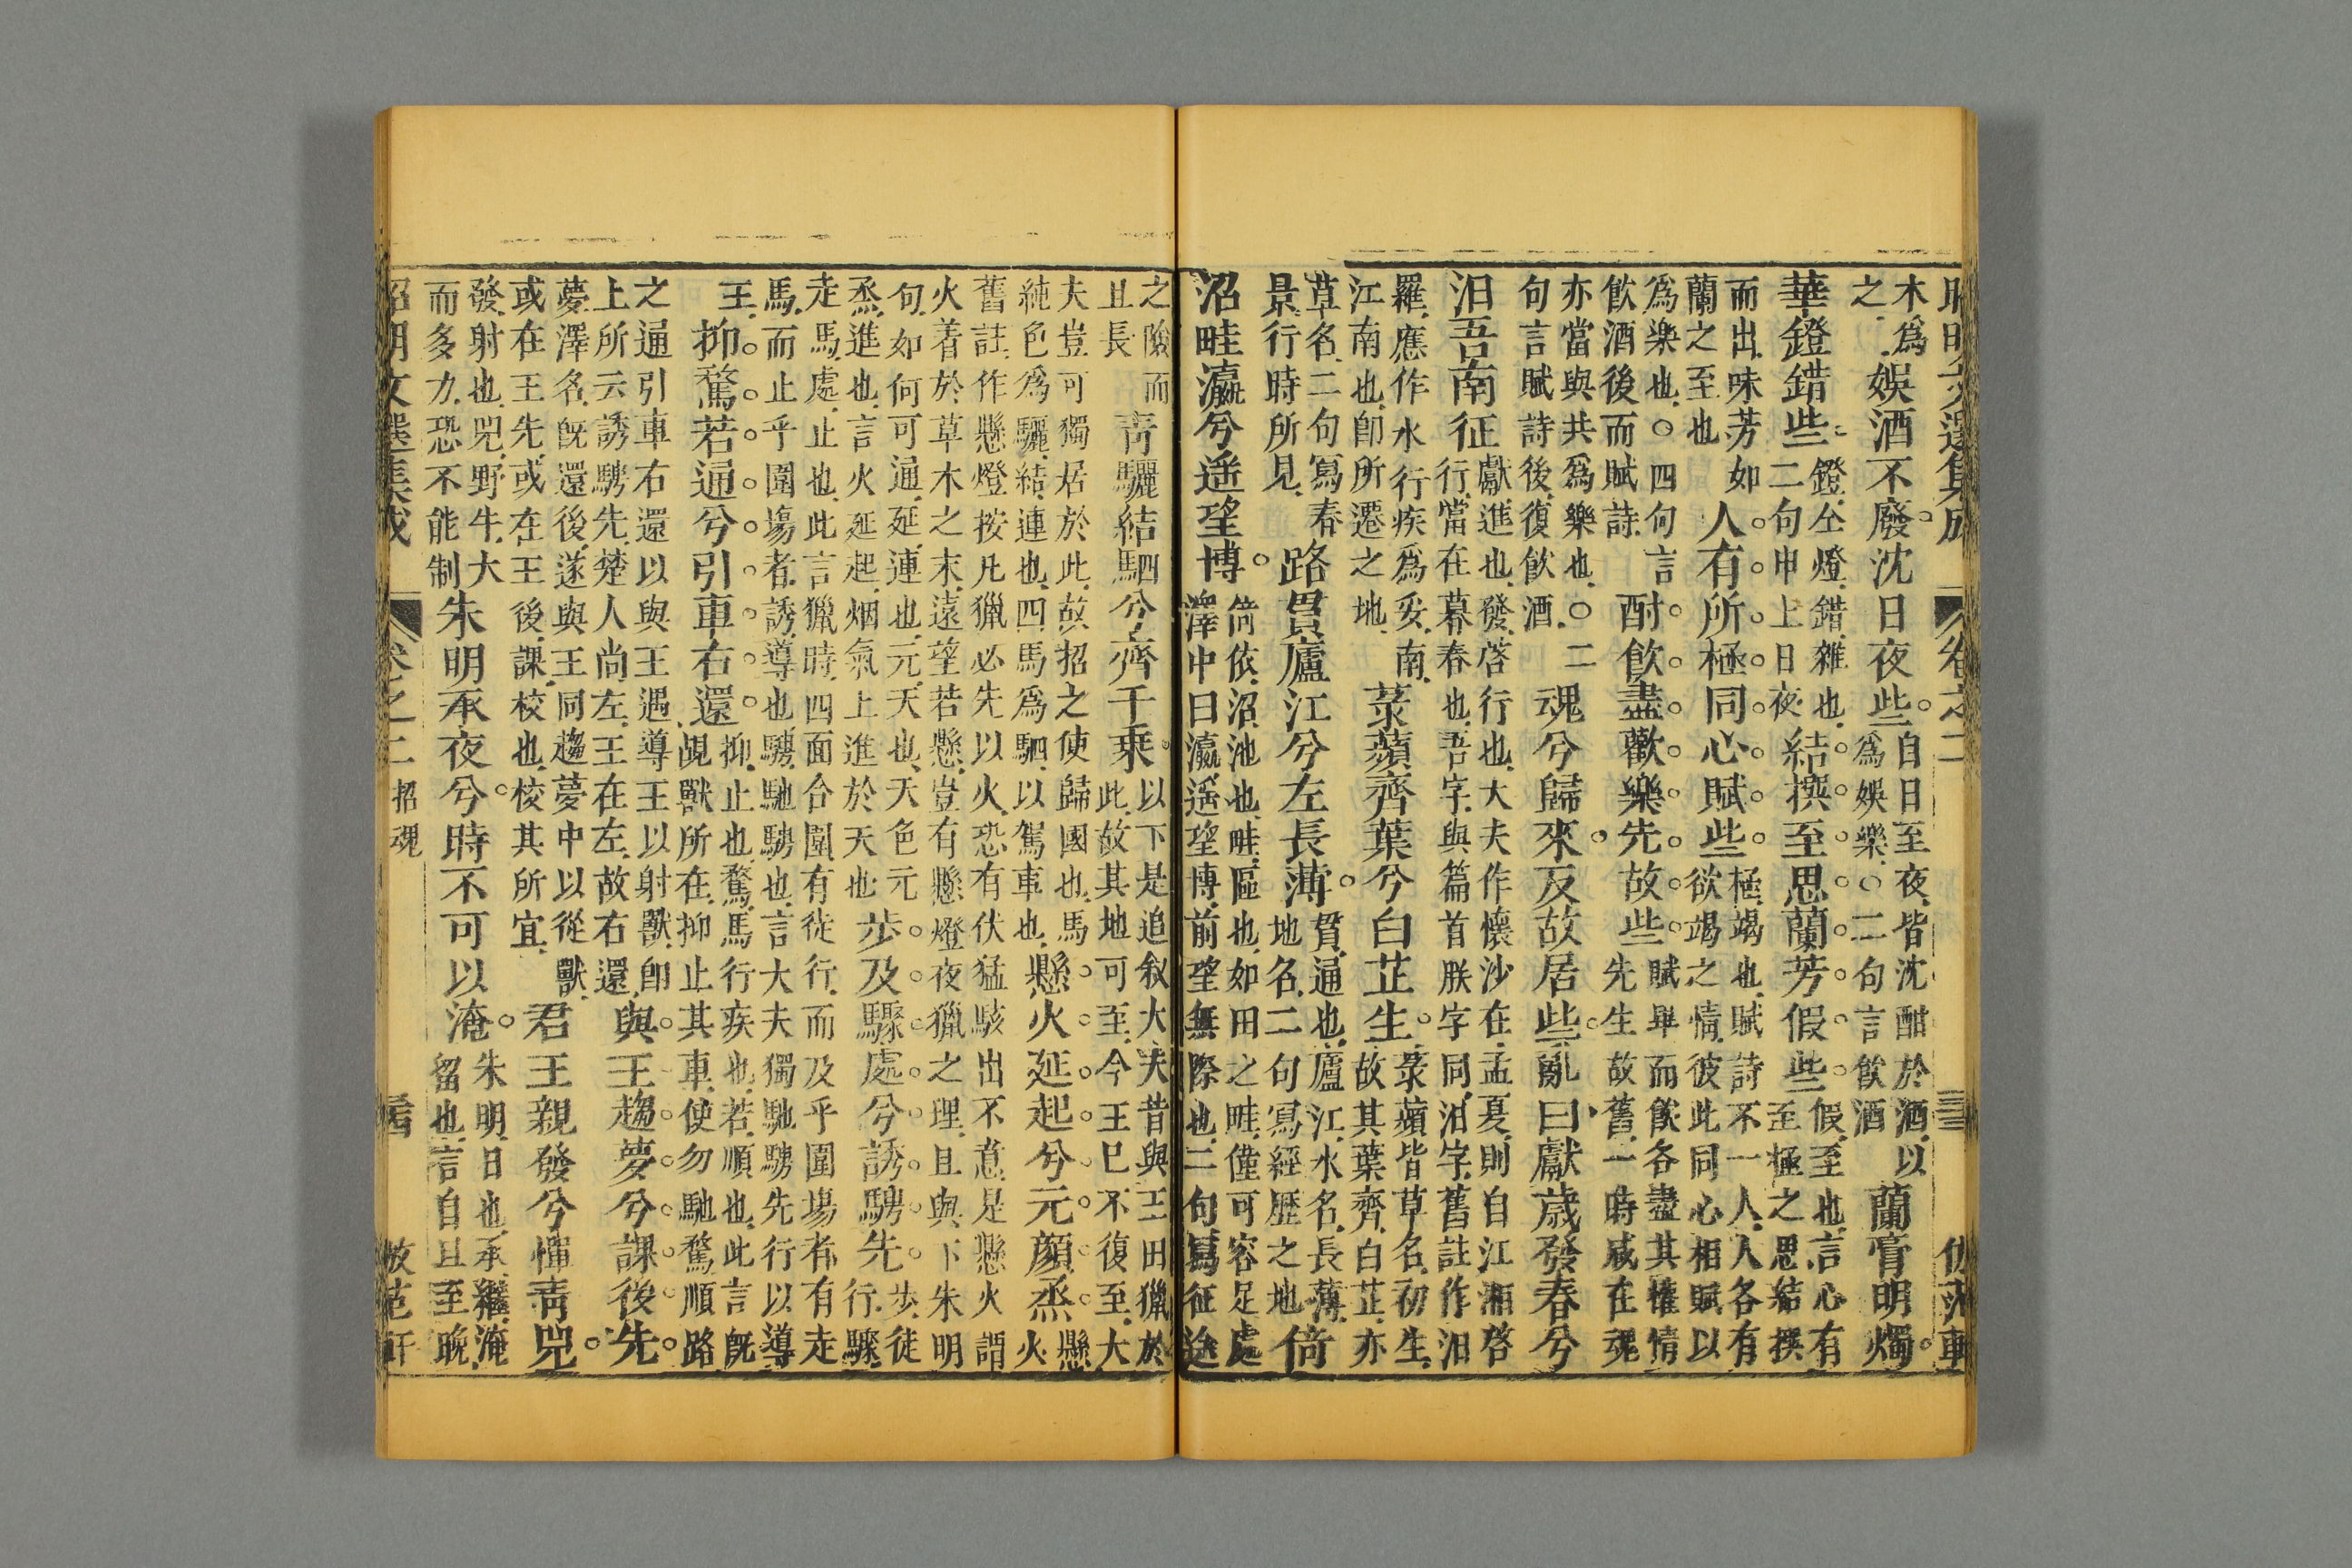 昭明文選集成 卷之二
木爲之娛酒不廢沈日夜些白日至夜皆沈酣於酒以爲娛樂○二句言飲酒蘭膏明燭
華鐙錯些鐙仝燈錯雜也二句申上日夜結撰至思蘭芳假些假至也言心有至極之思結撰
而出味芳如蘭之至也人有所極同心賦些極竭也賦詩不一人人各有欲竭之情彼此同心相賦以
爲樂也○四句言飲酒後而賦詩酎飲盡歡樂先故些賦畢而飲各盡其權情先生故舊一時咸在魂
亦當與共爲樂也○二句言賦詩後復飲酒魂兮歸來反故居些亂曰獻歲發春兮
汨吾南征獻進也發啓行也大夫作懷沙在孟夏則自江湘啓行當在暮春也吾字與篇首朕字同汨字舊註作汨
羅應作水行疾爲妥南江南也卽所遷之地菉蘋齊葉兮白芷生菉蘋皆草名初生故其葉齊白芷亦
草名二句寫春景行時所見路貫廬江兮左長薄貫通也廬江水名長薄地名二句寫經歷之地倚
沼畦瀛兮遙望博倚依沼池也畦區也如田之畦僅可容足處澤中曰瀛遙望博前望無際也二句寫征途
之險而且長靑驪結駟兮齊千乘以下是追叙大夫昔與王田獵於此故其地可至今王巳不復至大
夫豈可獨居於此故招之使歸國也馬純色爲驪結連也四馬爲駟以駕車也懸火延起兮元顏烝懸火
舊註作懸燈按凡獵必先以火恐有伏猛駭出不意是懸火謂火着於草木之末遠望若懸豈有懸燈夜獵之理且與下朱明
句如何可通延連也元天也天色元烝進也言火延起烟氣上進於天也步及驟處兮誘騁先步徒行驟
走馬處止也此言獵時四面合圍有徒行而及乎圍場者有走馬而止乎圍場者誘導也騁馳騁也言大夫獨馳騁先行以導
王抑騖若通兮引車右還抑止也騖馬行疾也若順也此言旣覘獸所在抑止其車使勿馳騖順路
之通引車右還以與王遇導王以射獸卽上所云誘騁先楚人尚左王在左故右還與王趨夢兮課後先
夢澤名旣還後遂與王同趨夢中以從獸或在王先或在王後課校也校其所宜君王親發兮憚靑兕
發射也兕野牛大而多力恐不能制朱明承夜兮時不可以淹朱明日也承繼淹留也言自旦至晚
昭明文選集成 卷之二 招魂 倣范軒